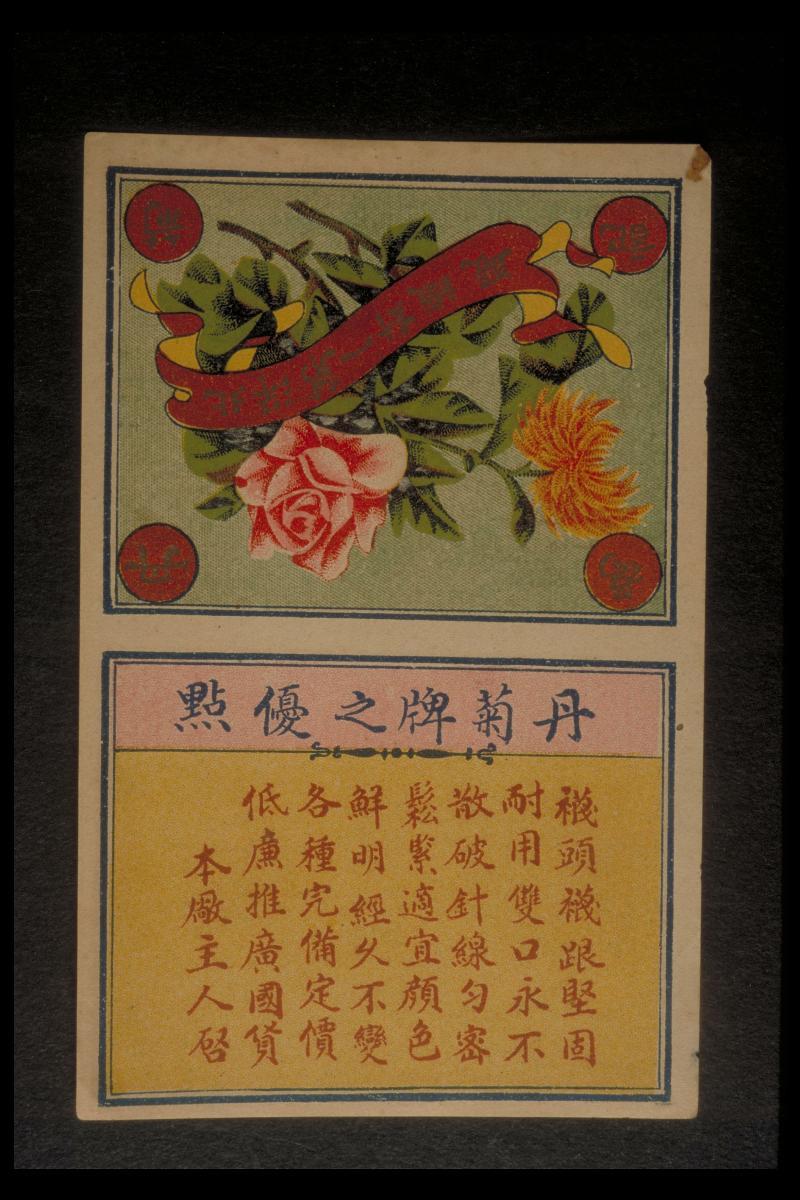 丹菊
丹菊牌之優點
襪頭襪跟堅固
耐用雙口永不
散破針線勻密
鬆緊適宜顏色
鮮明經久不變
各種完備定價
低廉推廣國貨
本廠主人啓